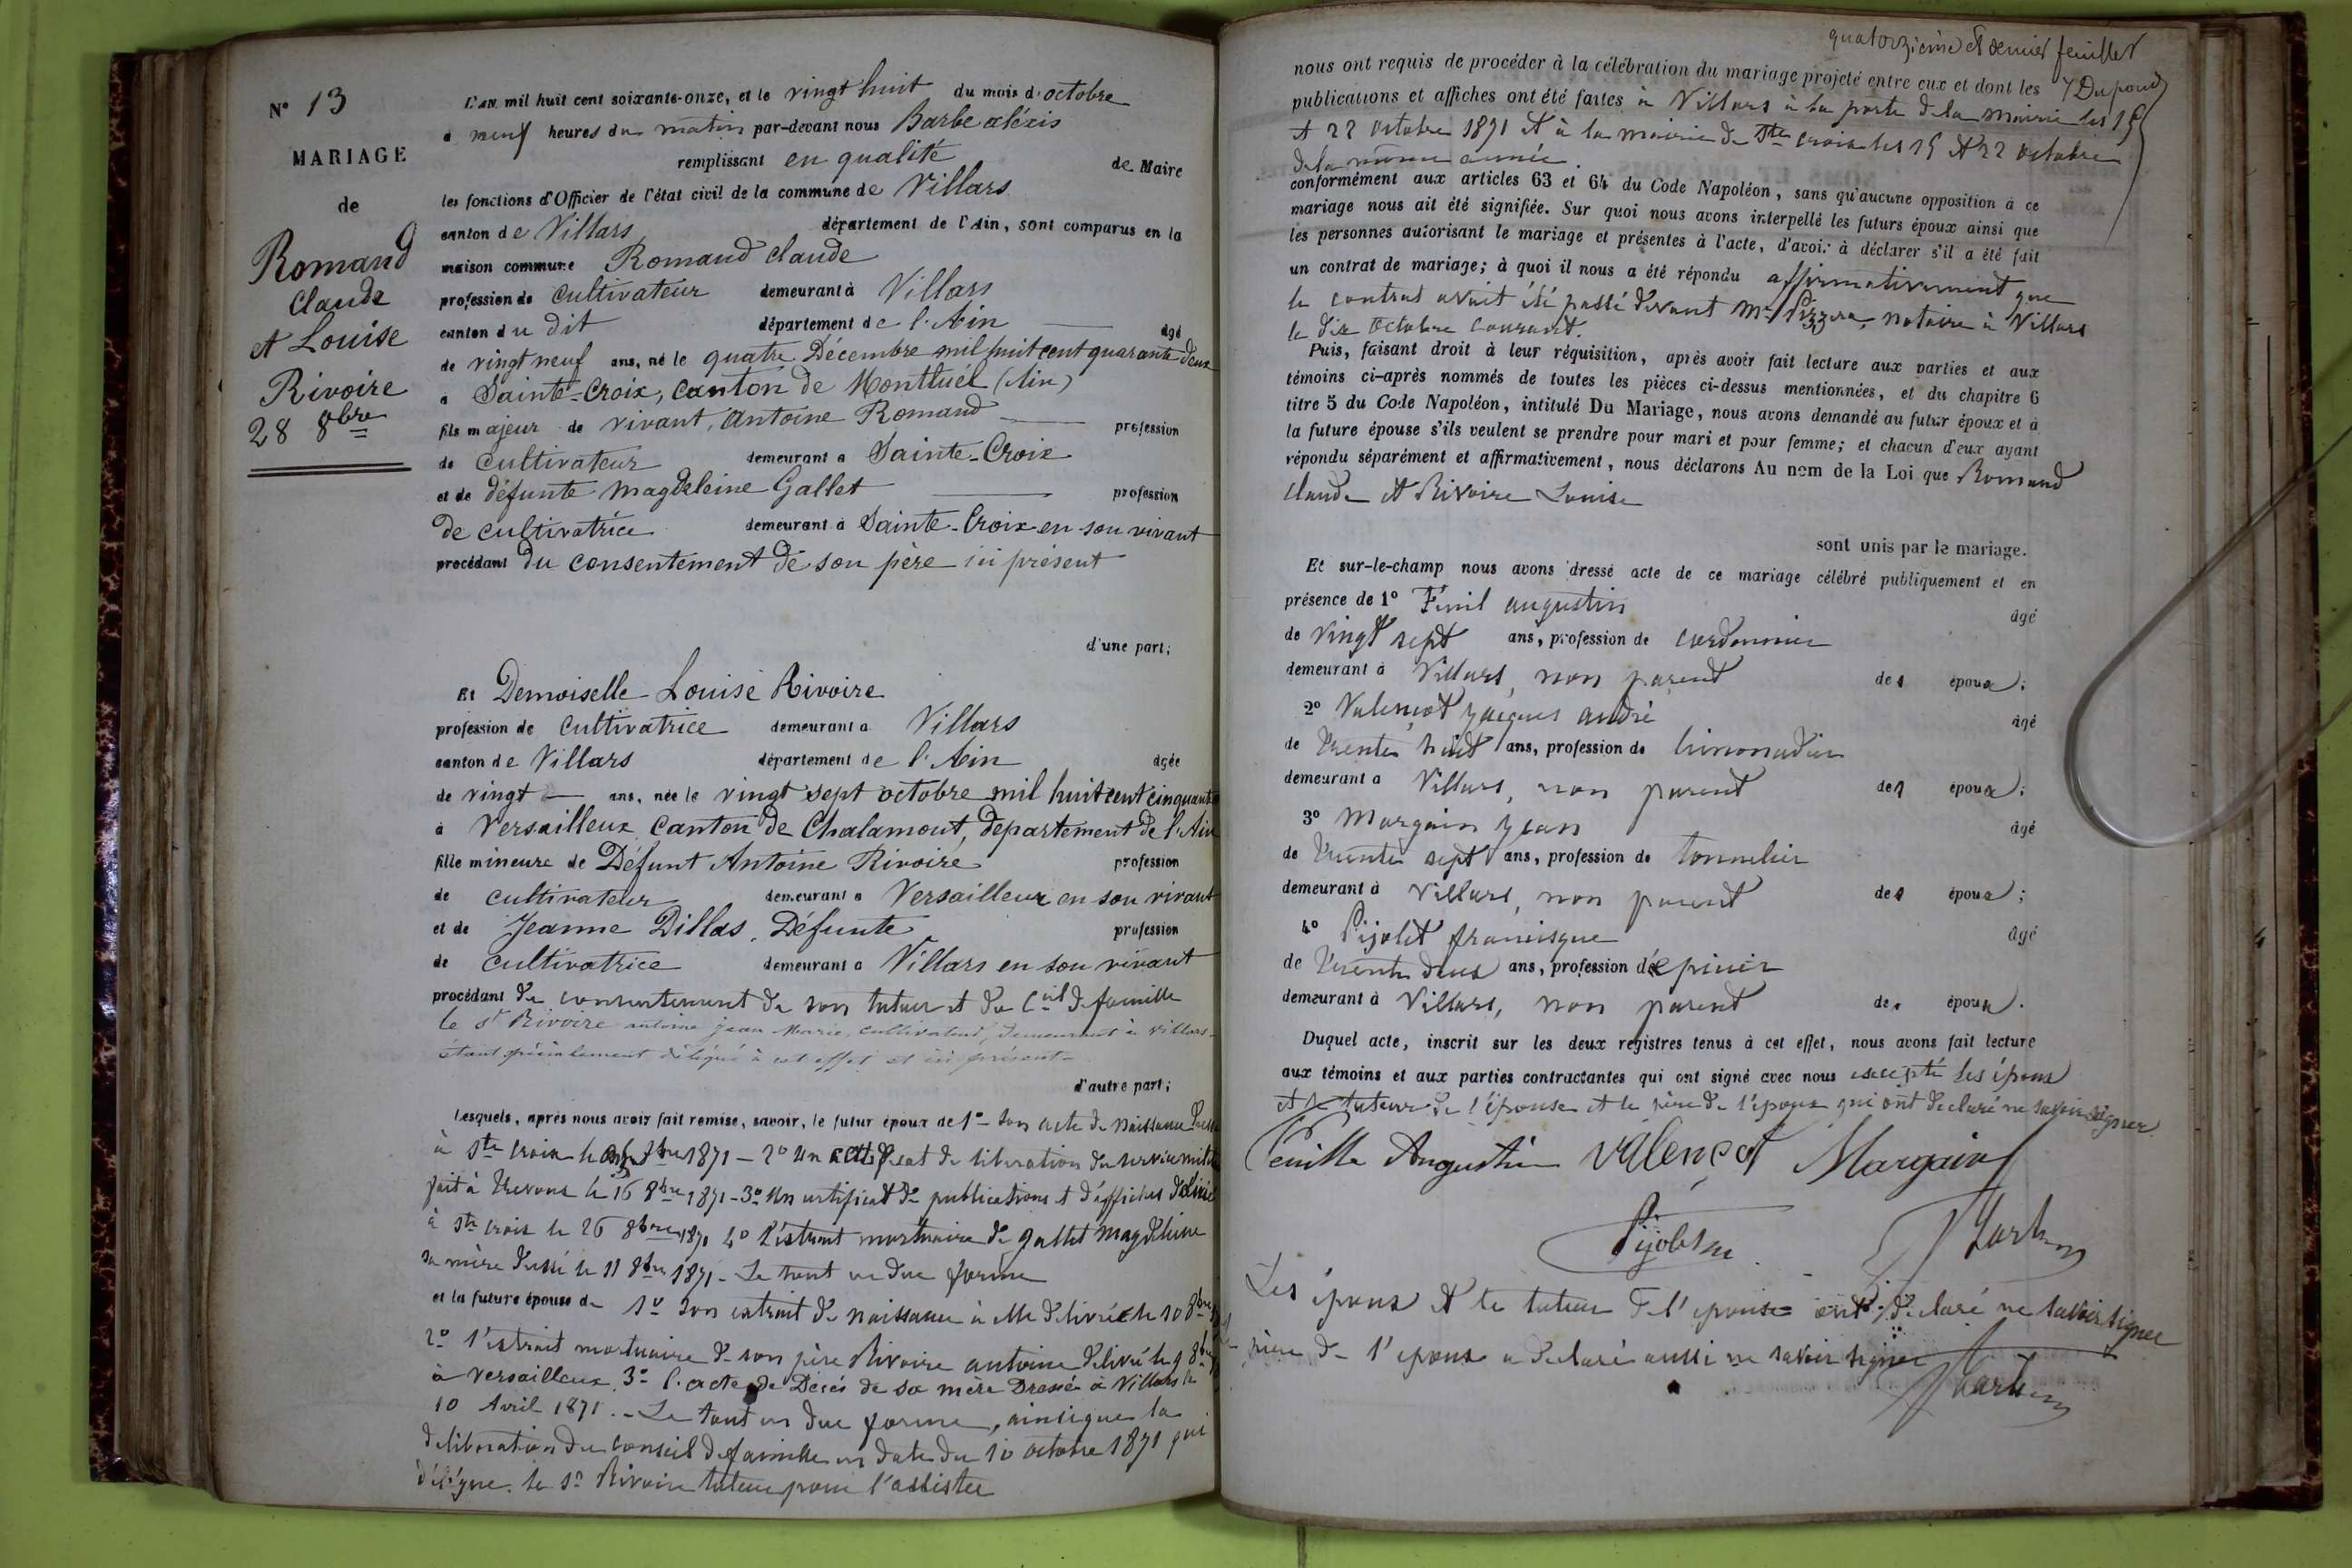 N° 13
MARIAGE
de
Romand
Claude
et Louise
Rivoire
28 8bre
L'AN mil huit cent soixante-onze, et le vingt huit du mois d'octobre
à neuf heures du matin par-devant nous Barbe aléxis
remplissant en qualité de Maire
les fonctions d'Officier de l'état civil de la commune de Villars
canton de Villars département de l'Ain, sont comparus en la
maison commune Romand Claude
profession de Cultivateur demeurant à Villars
canton du dit département de l'Ain âgé
de vingt neuf ans, né le quatre Décembre mil huit cent quarante deux
à Sainte-Croix, Canton de Montluel (Ain)
fils majeur de vivant, Antoine Romand profession
de Cultivateur demeurant à Sainte-Croix
et de défunte Magdeleine Gallet profession
de cultivatrice demeurant à Sainte-Croix en son vivant
procédant du consentement de son père ici présent
d'une part;
Et Demoiselle Louise Rivoire
profession de Cultivatrice demeurant à Villars
canton de Villars département de l'Ain âgée
de vingt ans, née le vingt sept octobre mil huit cent cinquante
à Versailleux Canton de Chalamont, département de l'Ain
fille mineure de Défunt Antoine Rivoire profession
de cultivateur demeurant à Versailleux en son vivant
et de Jeanne Dillas, Défunte profession
de cultivatrice demeurant à Villars en son vivant
procédant du consentement de son tuteur et du Cil de famille
le Sr Rivoire antoine Jean Marie, cultivateur, demeurant à Villars
étant spécialement délégué à cet effet et ici présent
d'autre part;
Lesquels, après nous avoir fait remise, savoir, le futur époux de 1° Son acte de Naissance
à Ste Croix le 8bre 1871 - 2° Un de libération du service
fait à Trevoux le 16 8bre 1871 - 3° Un certificat de publications et d'affiches délivré
à Ste Croix le 26 8bre 1871 4° L'extrait mortuaire de Gallet Magdeleine
sa mère le 11 8bre 1871 - Le tout en due forme
et la future épouse de 1° Son extrait de Naissance à elle délivré le 10 8bre
2° l'extrait mortuaire de son père Rivoire antoine délivré le 9 8bre
à Versailleux 3° l'acte de Décés de sa mère Dressé à Villars le
10 Avril 1871. - Le tout en due forme, ainsi que la
délibération du Conseil de famille en date du 10 octobre 1871 qui
délégue le Sr Rivoire tuteur pour l'assister
quatorzième et dernier feuillet
nous ont requis de procéder à la célébration du mariage projeté entre eux et dont les
publications et affiches ont été faites à Villars à la porte de la mairie les 15
et 22 octobre 1871 et à la mairie de Ste Croix les 15 et 22 octobre
de la même année.
conformément aux articles 63 et 64 du Code Napoléon, sans qu'aucune opposition à ce
mariage nous ait été signifiée. Sur quoi nous avons interpellé les futurs époux ainsi que
les personnes autorisant le mariage et présentes à l'acte, d'avoir à déclarer s'il a été fait
un contrat de mariage; à quoi il nous a été répondu affirmativement que
le contrat avait été passé devant Me Pizzera, notaire à Villars
le dix octobre courant.
Puis, faisant droit à leur réquisition, après avoir fait lecture aux parties et aux
témoins ci-après nommés de toutes les pièces ci-dessus mentionnées, et du chapitre 6
titre 5 du Code Napoléon, intitulé Du Mariage, nous avons demandé au futur époux et à
la future épouse s'ils veulent se prendre pour mari et pour femme; et chacun d'eux ayant
répondu séparément et affirmativement, nous déclarons Au nom de la Loi que Romand
Claude et Rivoire Louise
sont unis par le mariage.
Et sur-le-champ nous avons dressé acte de ce mariage célébré publiquement et en
présence de 1° augustin âgé
de vingt sept ans, profession de cordonnier
demeurant à Villars, non parent des époux;
2° Valençot Jacques andré âgé
de trente huit ans, profession de limonadier
demeurant à Villars, non parent des époux;
3° Margain Jean âgé
de trente sept ans, profession de tonnelier
demeurant à Villars, non parent des époux;
4° Pijolet francisque âgé
de trente deux ans, profession d'épicier
demeurant à Villars, non parent des époux.
Duquel acte, inscrit sur les deux registres tenus à cet effet, nous avons fait lecture
aux témoins et aux parties contractantes qui ont signé avec nous excepté les époux
et le tuteur de l'épouse et le père de l'époux qui ont declaré ne savoir signer
Augustin Valençot Margain
Les époux et le tuteur de l'épouse ont declaré ne savoir signer
père de l'époux a declaré aussi ne savoir signer